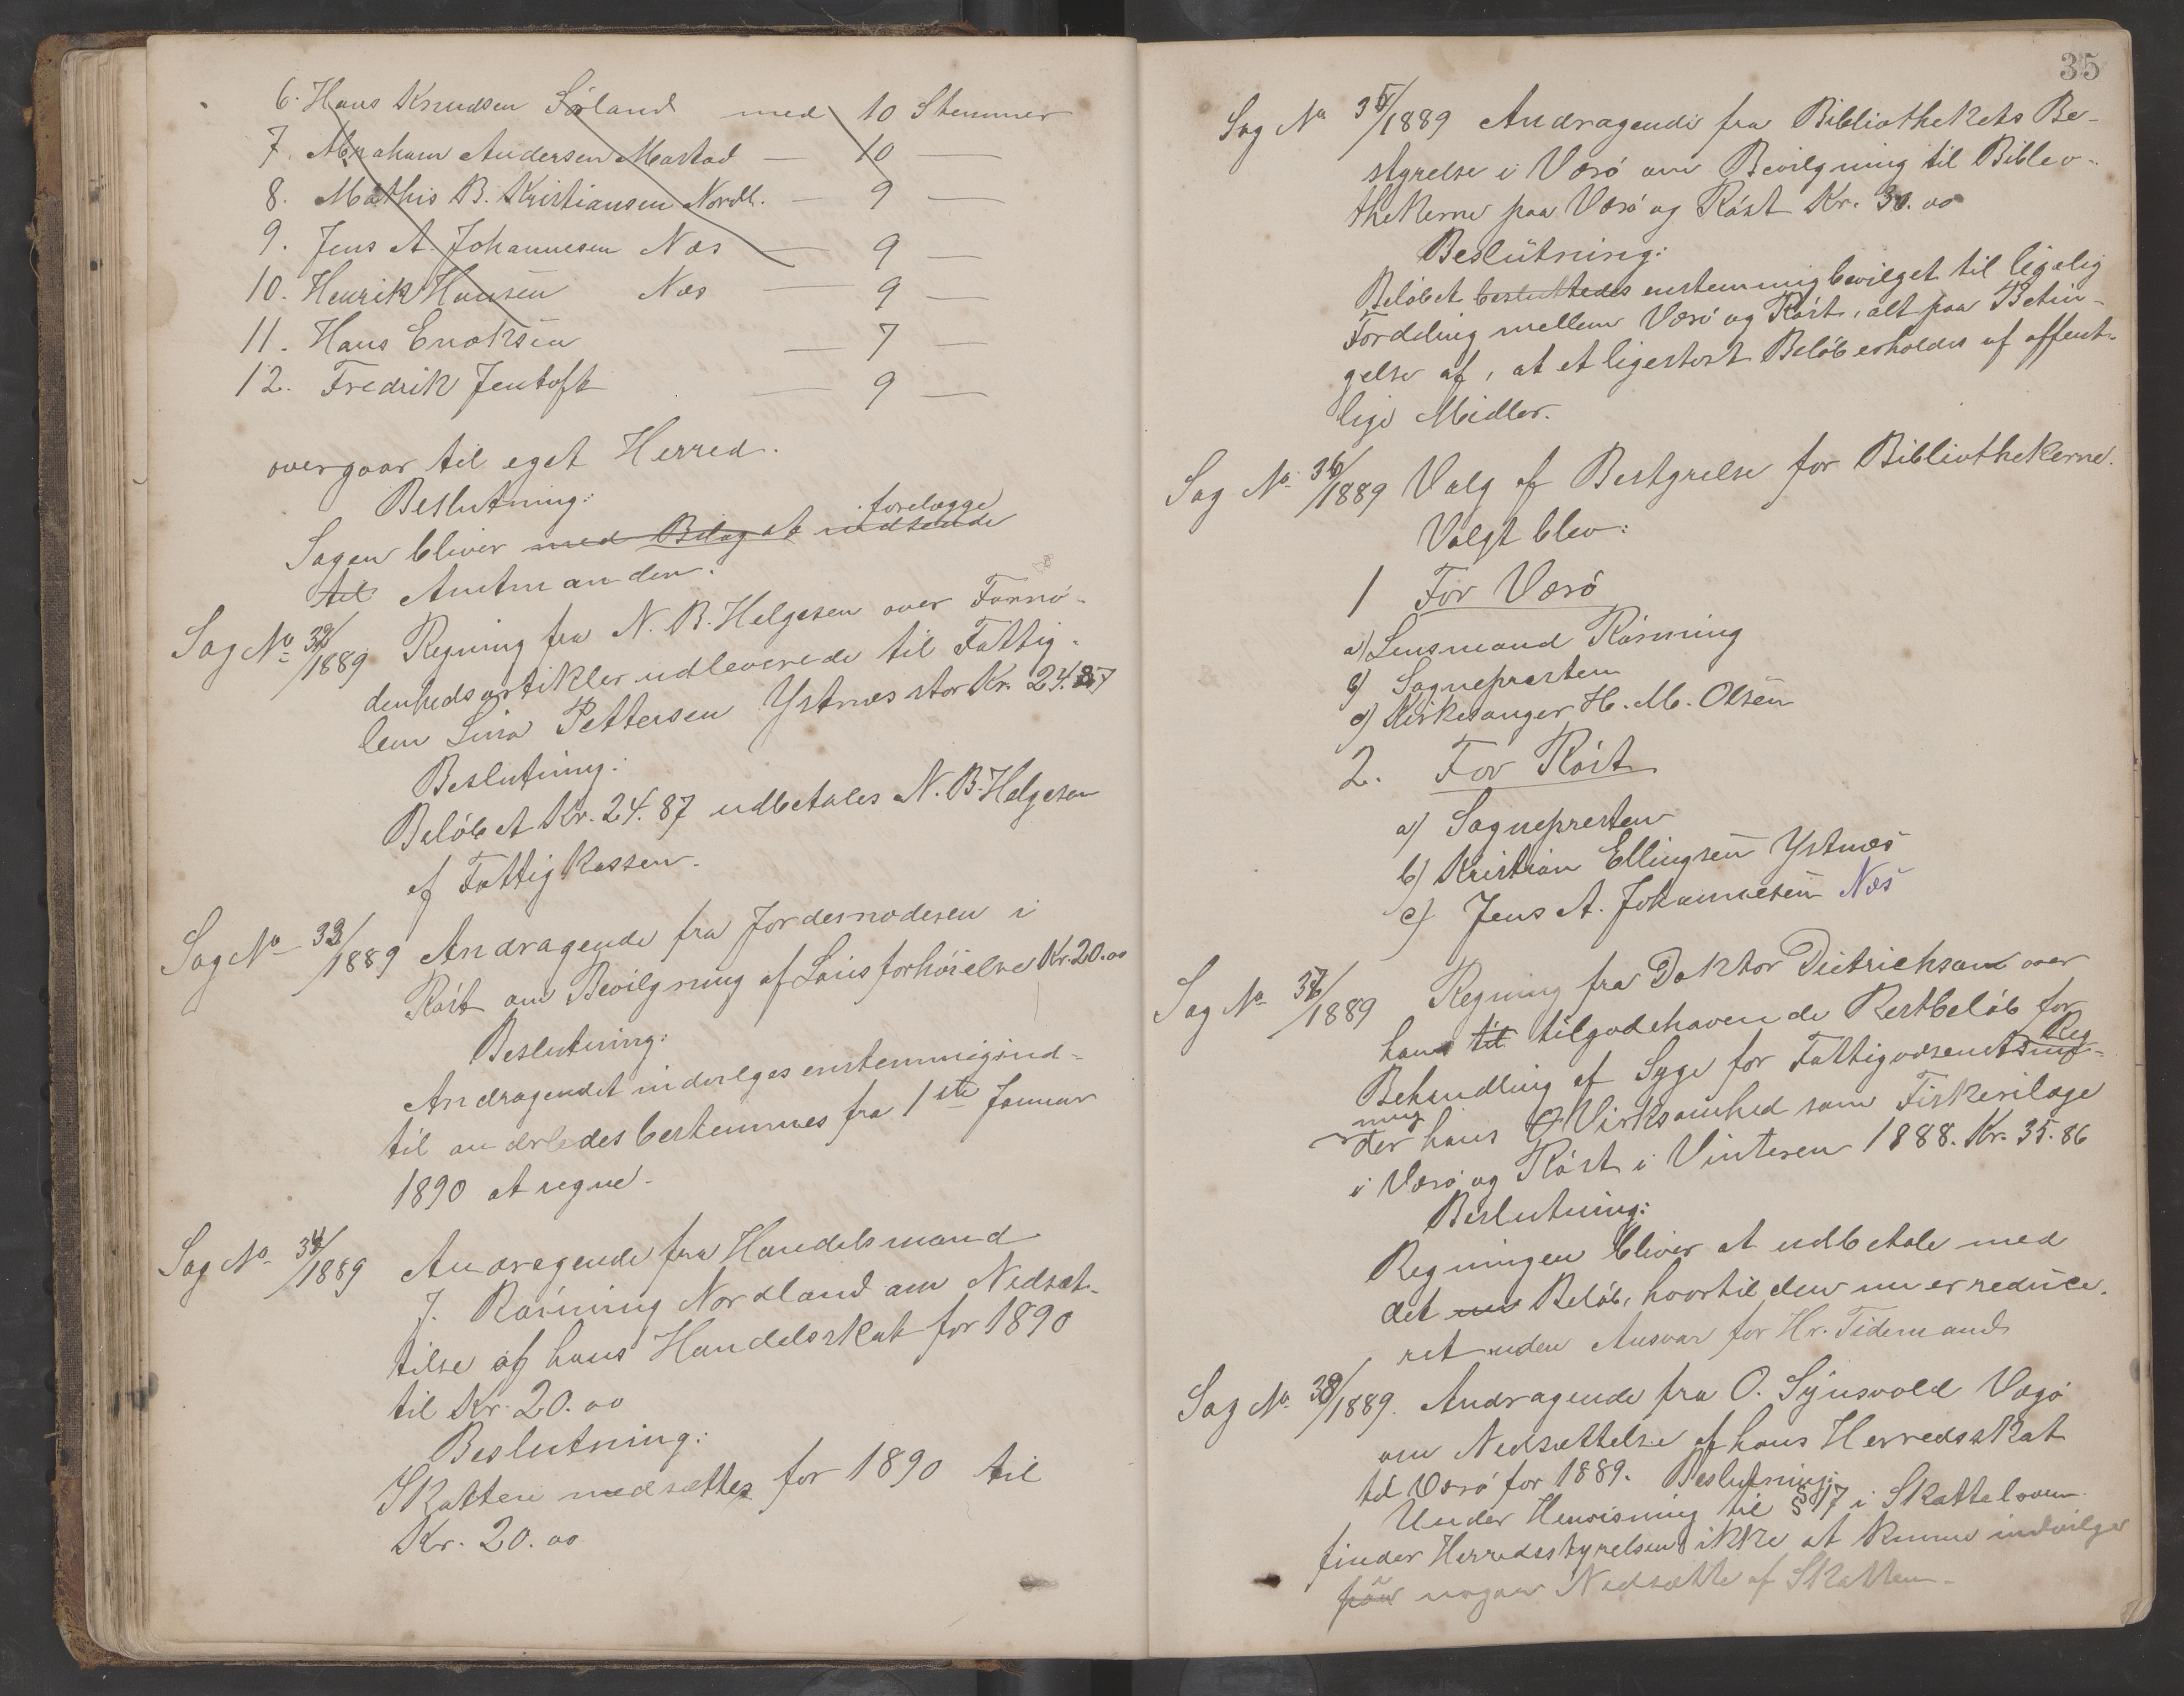 6. Hans Knudsen Sørland med 10 Stemmer
7. Abraham Andersen Mastad — 10 —
8. Mathis B. Kristiansen Nordl. — 9 —
9. Jens A. Johannesen Næs — 9 —
10. Henrik Hansen Næs — 9 —
11. Hans Enoksen — 7 —
12. Fredrik Jentoft — 9 —
overgaar til eget Herred.
Beslutning:
forelægge
Sagen bliver med Bilag at indsende
til Amtmanden.
Sag No 32/1889 Regning fra N. B. Helgesen over Fornø-
denhedsartikler udleverede til Fattig-
lem Lina Pettersen Ystnes stor Kr. 24.87
Beslutning:
Beløbet Kr. 24.87 udbetales N. B. Helgesen
af Fattigkassen.
Sag No 33/1889 Andragende fra Jordemoderen i
Røst om Bevilgning af Lønsforhøielse Kr. 20.00
Beslutning:
Andragendet indvilges enstemmig ind-
til anderledes bestemmes fra 1ste Januar
1890 at regne.
Sag No 34/1889 Andragende fra Handelsmand
J. Rønning Nordland om Nedsæt-
telse af hans Handelsskat for 1890
til Kr. 20.00
Beslutning:
Skatten nedsættes for 1890 til
Kr. 20.00
35
Sag No 35/1889 Andragende fra Bibliothekets Be-
styrelse i Værø om Bevilgning til Biblio-
thekerne paa Værø og Røst Kr. 30.00
Beslutning:
Beløbet besluttedes enstemmig bevilget til ligelig
Fordeling mellem Værø og Røst, alt paa Betin-
gelse af, at et ligestort Beløb erholdes af offent-
lige Midler.
Sag No 36/1889 Valg af Bestyrelse for Bibliothekerne.
Valgt blev:
1 For Værø
a) Lensmand Rønning
b) Sognepresten
c) Kirkesanger H. M. Olsen
2. For Røst
a) Sognepresten
b) Kristian Ellingsen Ystnes
c) Jens A. Johannesen Næs
Sag No 37/1889 Regning fra Doktor Dietrichson over
hans til tilgodehavende Restbeløb for
Behandling af Syge for Fattigvæsenets Reg-
ning
der hans Virksomhed som Fiskerilæge
i Værø og Røst i Vinteren 1888. Kr. 35.86
Beslutning:
Regningen bliver at udbetale med
det Beløb, hvortil den nu er reduce-
ret uden Ansvar for Hr. Tidemand
Sag No 38/1889. Andragende fra O. Synsvold Vågø
om Nedsættelse af hans Herredsskat
til Værø for 1889. Beslutning:
Under Henvisning til § 17 i Skatteloven
finder Herredsstyrelsen ikke at kunne indvilge
paa nogen Nedsætte af Skatten.